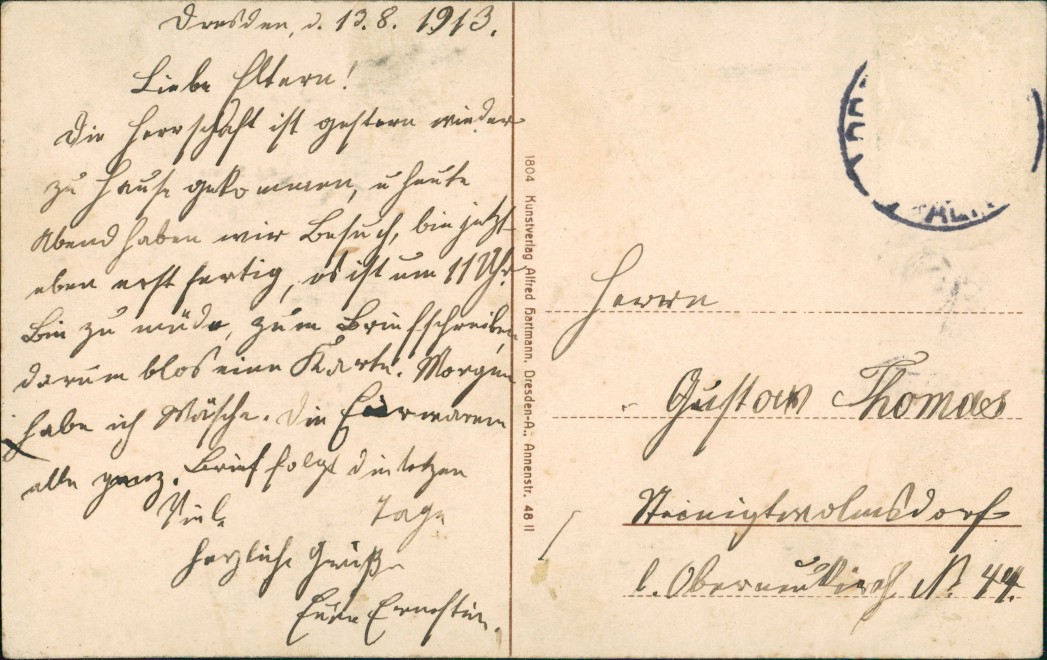 Dresden, d. 13.8.1913.
Liebe Eltern!
Die Herrschaft ist gestern wieder
zu Hause gekommen, u heute
Abend haben wir Besuch, bin jetzt
eben erst fertig, es ist um 11 Uhr.
Bin zu müde, zum Briefschreiben
darum blos eine Karte. Morgen
habe ich Wäsche. Die Eier waren
alle ganz. Brief folgt die letzen
Viele Tage
herzliche Grüße
Eure Ernestine.
1804 Kunstverlag Alfred Hartmann, Dresden-A., Annenstr. 48 II
Herrn
Gustav Thomas
Steinigtwolmsdorf
b. Oberneukirch N. 44.